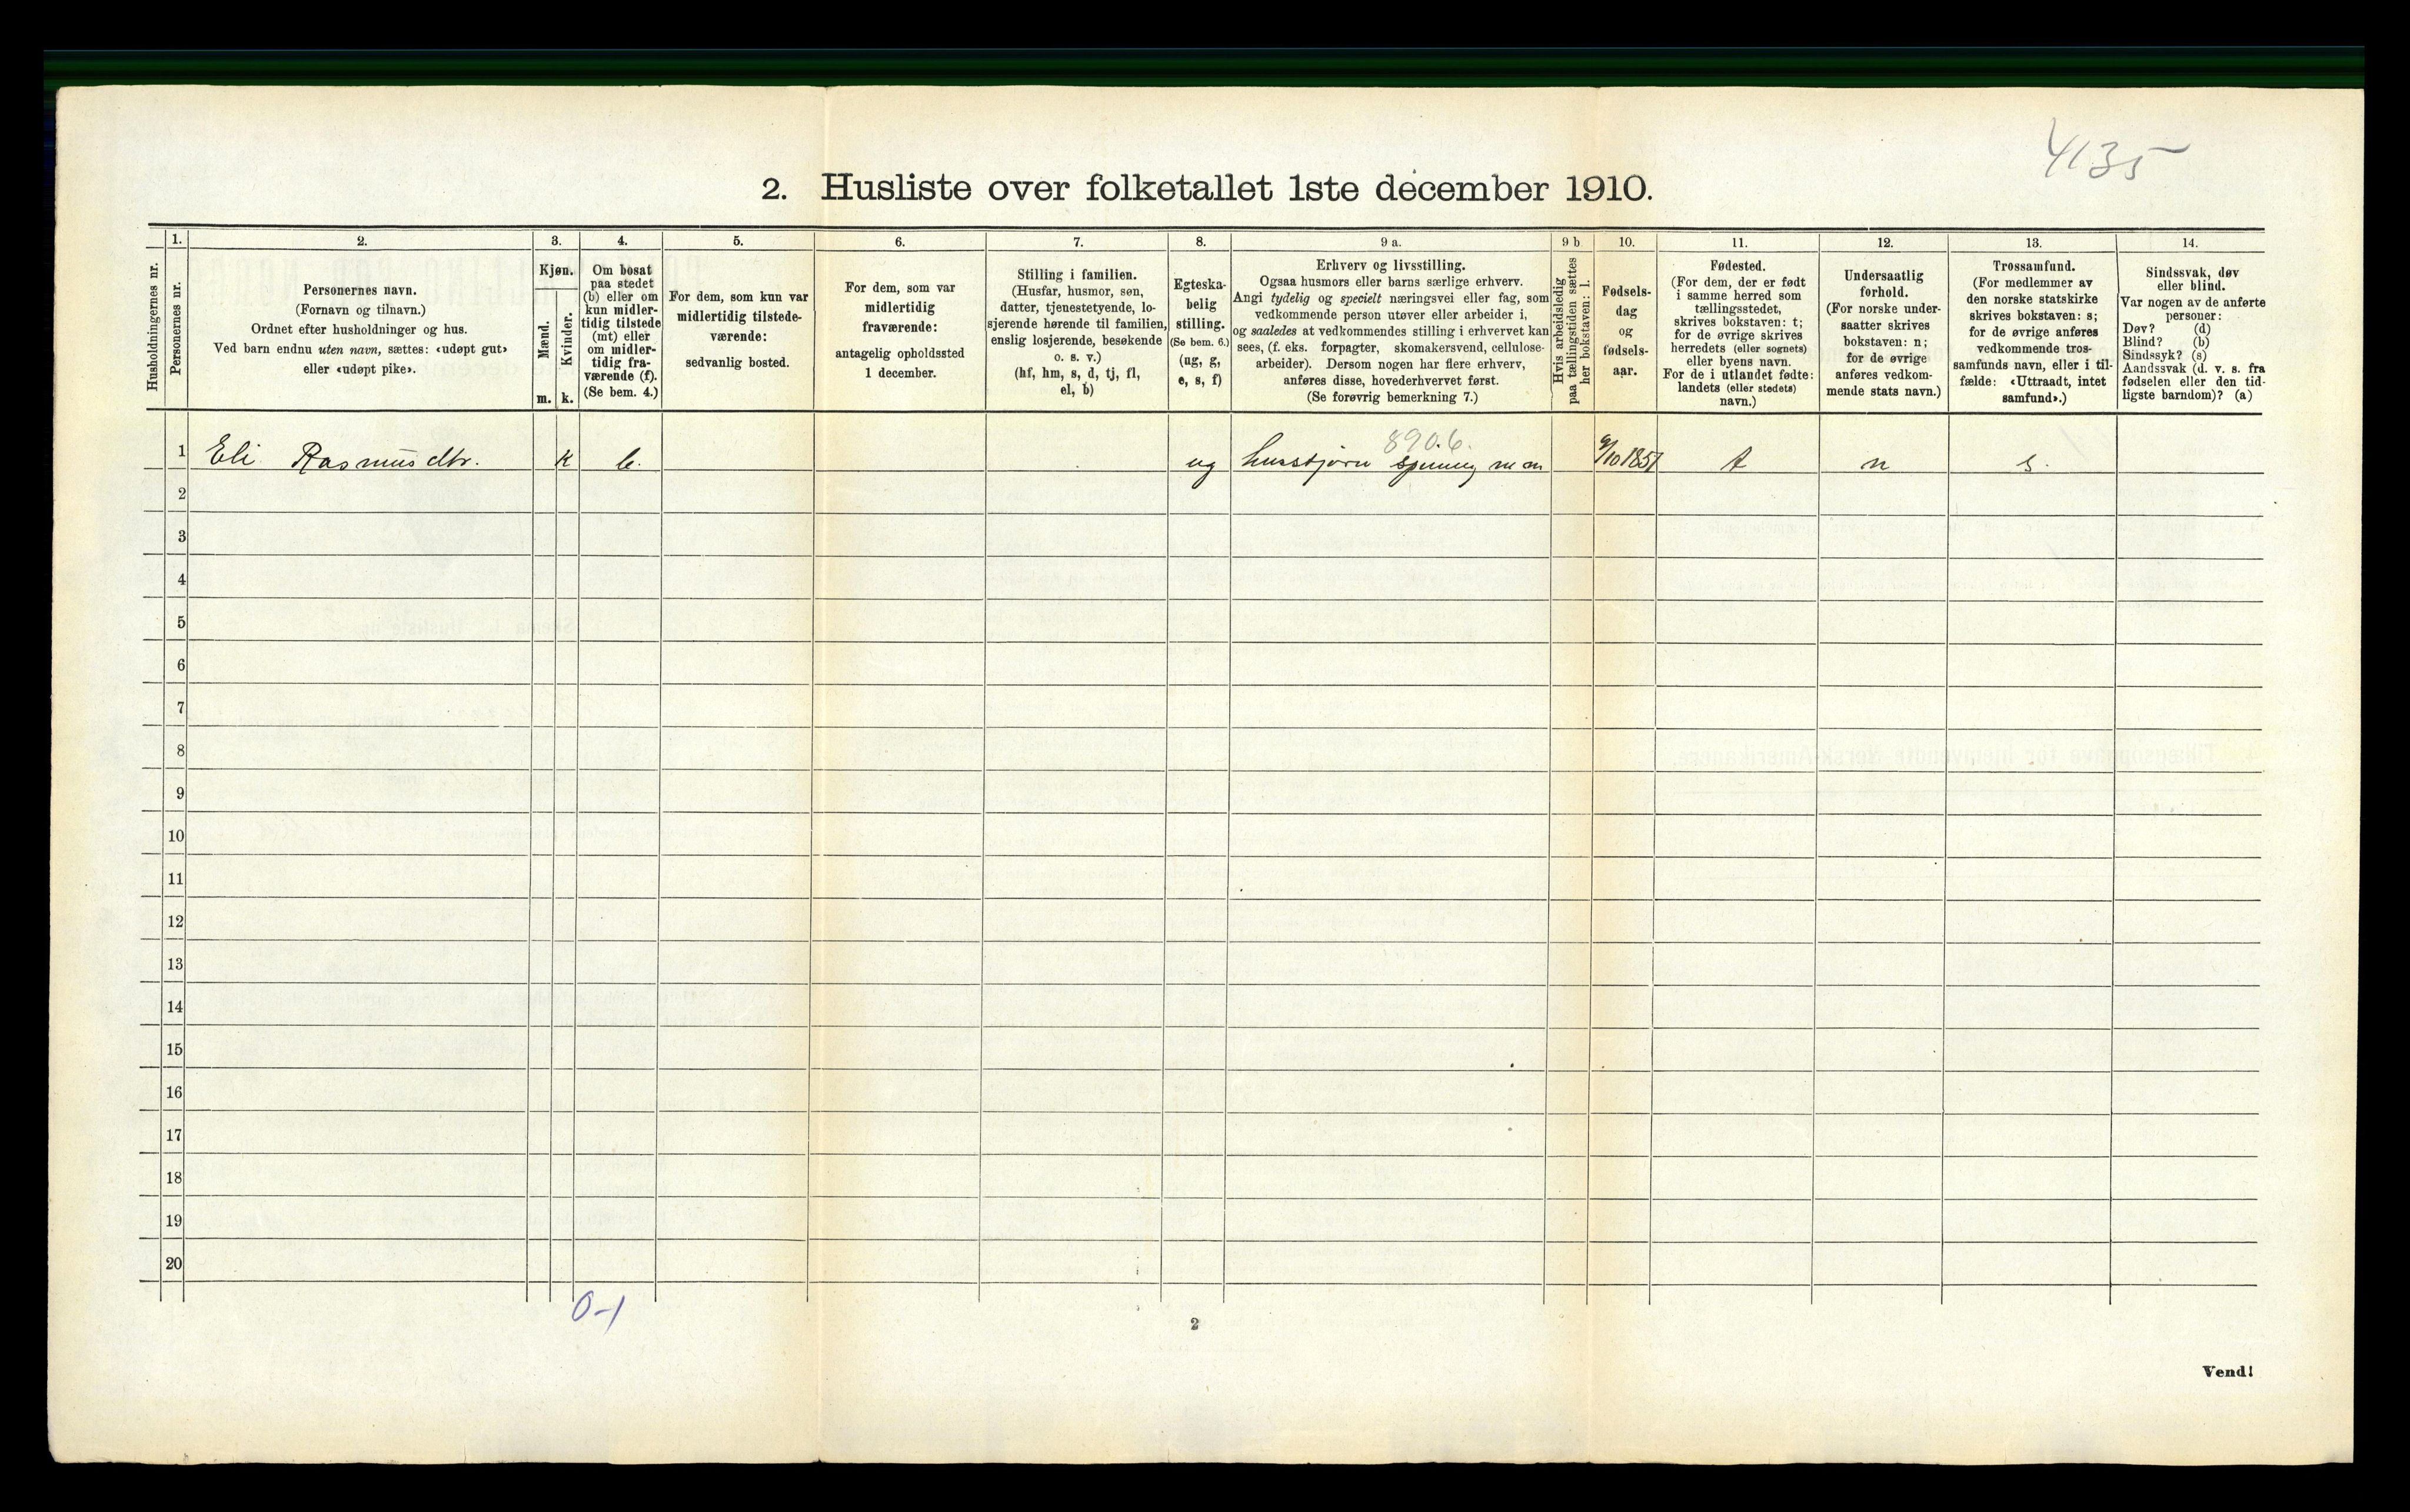 4135
2. Husliste over folketallet 1ste december 1910.
Husholdningernes nr.
1.
Personernes nr.
2.
Personernes navn.
(Fornavn og tilnavn.)
Ordnet efter husholdninger og hus.
Ved barn endnu uten navn, sættes: «udøpt gut»
eller «udøpt pike».
3.
Kjøn.
Mænd.
Kvinder.
m.
k.
4.
Om bosat
paa stedet
(b) eller om
kun midler-
tidig tilstede
(mt) eller
om midler-
tidig fra-
værende (f).
(Se bem. 4.)
5.
For dem, som kun var
midlertidig tilstede-
værende:
sedvanlig bosted.
6.
For dem, som var
midlertidig
fraværende:
antagelig opholdssted
1 december.
7.
Stilling i familien.
(Husfar, husmor, søn,
datter, tjenestetyende, lo-
sjerende hørende til familien,
enslig losjerende, besøkende
o. s. v.)
(hf, hm, s, d, tj, fl,
el, b)
8.
Egteska-
belig
stilling.
(Se bem. 6.)
(ug, g,
e, s, f)
9 a.
Erhverv og livsstilling.
Ogsaa husmors eller barns særlige erhverv.
Angi tydelig og specielt næringsvei eller fag, som
vedkommende person utøver eller arbeider i,
og saaledes at vedkommendes stilling i erhvervet kan
sees, (f. eks. forpagter, skomakersvend, cellulose-
arbeider). Dersom nogen har flere erhverv,
anføres disse, hovederhvervet først.
(Se forøvrig bemerkning 7.)
9 b
Hvis arbeidsledig
paa tællingstiden sættes
her bokstaven: l.
10.
Fødsels-
dag
og
fødsels-
aar.
11.
Fødested.
(For dem, der er født
i samme herred som
tællingsstedet,
skrives bokstaven: t;
for de øvrige skrives
herredets (eller sognets)
eller byens navn.
For de i utlandet fødte:
landets (eller stedets)
navn.)
12.
Undersaatlig
forhold.
(For norske under-
saatter skrives
bokstaven: n;
for de øvrige
anføres vedkom-
mende stats navn.)
13.
Trossamfund.
(For medlemmer av
den norske statskirke
skrives bokstaven: s;
for de øvrige anføres
vedkommende tros-
samfunds navn, eller i til-
fælde: «Uttraadt, intet
samfund».)
14.
Sindssvak, døv
eller blind.
Var nogen av de anførte
personer:
Døv? (d)
Blind? (b)
Sindssyk? (s)
Aandssvak (d. v. s. fra
fødselen eller den tid-
ligste barndom)? (a)
890.6.
1 Eli Rasmusdtr. k b. ug 9/10 1851 t n s.
2
3
4
5
6
7
8
9
10
11
12
13
14
15
16
17
18
19
20
0-1
2
Vend!